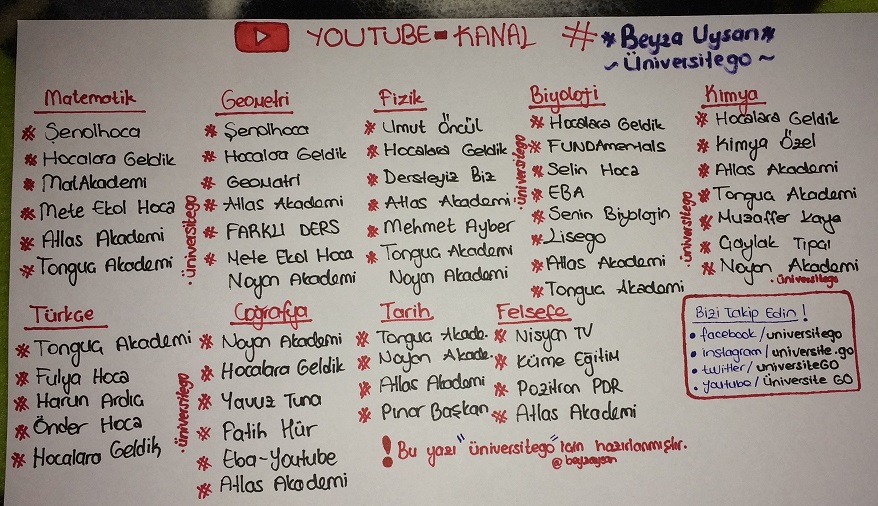 YOUTUBE-KANAL # * Beyza Uysan *
~ Üniversitego ~
Matematik
* Şenolhoca
* Hocalara Geldik
* MatAkademi
* Mete Ekol Hoca
* Atlas Akademi
* Tonguç Akademi
Geometri
* Şenolhoca
* Hocalara Geldik
* Geomatri
* Atlas Akademi
* FARKLI DERS
* Mete Ekol Hoca
Nayon Akademi
Fizik
* Umut Öncül
* Hocalara Geldik
* Dersteyiz Biz
* Atlas Akademi
* Mehmet Ayber
* Tonguç Akademi
Noyan Akademi
Biyoloji
* Hocalara Geldik
* FUNDAmentals
* Selin Hoca
* EBA
* Senin Biyolojin
* Lisego
* Atlas Akademi
* Tonguç Akademi
Kimya
* Hocalara Geldik
* Kimya Özel
* Atlas Akademi
* Tonguç Akademi
* Muzaffer Kaya
* Çaylak Tipai
* Noyan Akademi
• üniversitego
• üniversitego
• üniversitego
• üniversitego
Türkçe
* Tonguç Akademi
* Fulya Hoca
* Harun Ardıç
* Önder Hoca
* Hocalara Geldik
• üniversitego
Coğrafya
* Noyan Akademi
* Hocalara Geldik
* Yavuz Tuna
* Fatih Hür
* Eba-Youtube
* Atlas Akademi
Tarih
* Tonguç Akade.
* Noyan Akade.
* Atlas Akademi
* Pınar Başkan
Felsefe
* Nisyan TV
* Küme Eğitim
* Pozitron PDR
* Atlas Akademi
Bizi Takip Edin !
• facebook/universitego
• instagram/universite.go
• twitter/universiteGO
• youtube/Üniversite GO
! Bu yazı "üniversitego" için hazırlanmıştır.
@beyzauysan